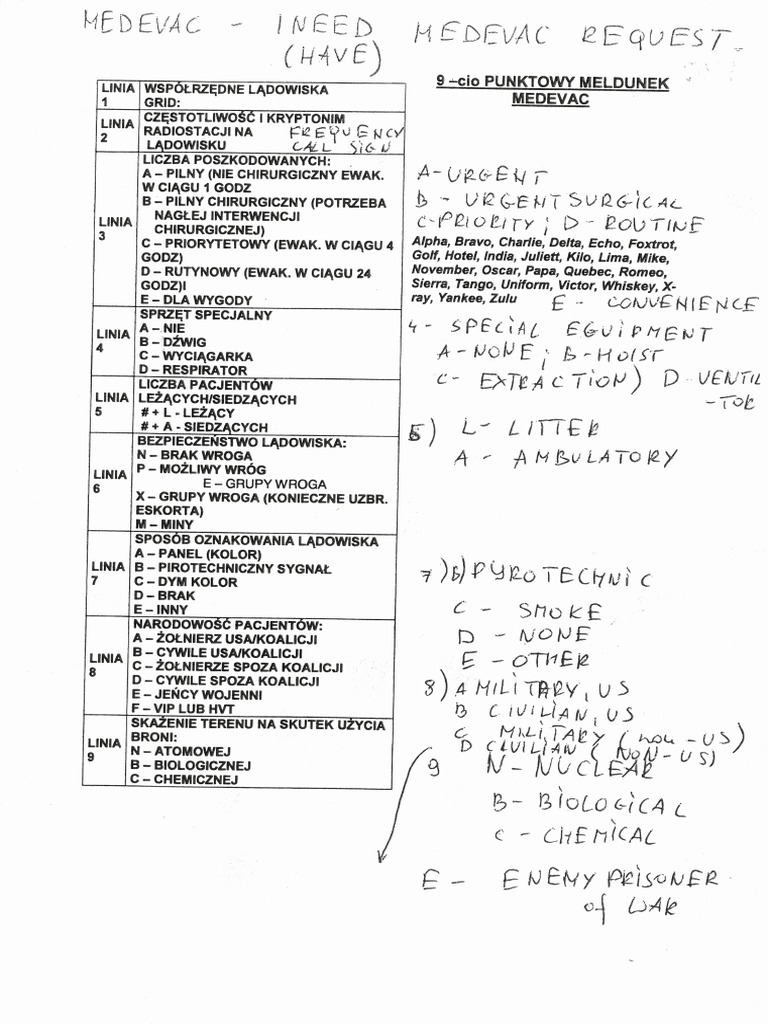 MEDEVAC - I NEED MEDEVAC REQUEST
(HAVE)
9 –cio PUNKTOWY MELDUNEK
MEDEVAC
LINIA 1
WSPÓŁRZĘDNE LĄDOWISKA
GRID:
LINIA 2
CZĘSTOTLIWOŚĆ I KRYPTONIM
RADIOSTACJI NA FREQUENCY
LĄDOWISKU CALL SIGN
LINIA 3
LICZBA POSZKODOWANYCH:
A – PILNY (NIE CHIRURGICZNY EWAK.
W CIĄGU 1 GODZ
B – PILNY CHIRURGICZNY (POTRZEBA
NAGŁEJ INTERWENCJI
CHIRURGICZNEJ)
C – PRIORYTETOWY (EWAK. W CIĄGU 4
GODZ)
D – RUTYNOWY (EWAK. W CIĄGU 24
GODZ)I
E – DLA WYGODY
A - URGENT
B - URGENT SURGICAL
C - PRIORITY; D - ROUTINE
Alpha, Bravo, Charlie, Delta, Echo, Foxtrot,
Golf, Hotel, India, Juliett, Kilo, Lima, Mike,
November, Oscar, Papa, Quebec, Romeo,
Sierra, Tango, Uniform, Victor, Whiskey, X-
ray, Yankee, Zulu E - CONVENIENCE
LINIA 4
SPRZĘT SPECJALNY
A – NIE
B – DŹWIG
C – WYCIĄGARKA
D – RESPIRATOR
4 - SPECIAL EGUIPMENT
A - NONE; B - HOIST
C - EXTRACTION) D - VENTIL
-TOR
LINIA 5
LICZBA PACJENTÓW
LEŻĄCYCH/SIEDZĄCYCH
# + L - LEŻĄCY
# + A - SIEDZĄCYCH
5) L - LITTER
A - AMBULATORY
LINIA 6
BEZPIECZEŃSTWO LĄDOWISKA:
N – BRAK WROGA
P – MOŻLIWY WRÓG
E – GRUPY WROGA
X – GRUPY WROGA (KONIECZNE UZBR.
ESKORTA)
M – MINY
LINIA 7
SPOSÓB OZNAKOWANIA LĄDOWISKA
A – PANEL (KOLOR)
B – PIROTECHNICZNY SYGNAŁ
C – DYM KOLOR
D – BRAK
E – INNY
7) B) PYROTECHNIC
C - SMOKE
D - NONE
E - OTHER
LINIA 8
NARODOWOŚĆ PACJENTÓW:
A – ŻOŁNIERZ USA/KOALICJI
B – CYWILE USA/KOALICJI
C – ŻOŁNIERZE SPOZA KOALICJI
D – CYWILE SPOZA KOALICJI
E – JEŃCY WOJENNI
F – VIP LUB HVT
8) A MILITARY, US
B CIVILIAN, US
C MILITARY (non-US)
D CIVILIAN (NON-US)
LINIA 9
SKAŻENIE TERENU NA SKUTEK UŻYCIA
BRONI:
N – ATOMOWEJ
B – BIOLOGICZNEJ
C – CHEMICZNEJ
9 N - NUCLEAR
B - BIOLOGICAL
C - CHEMICAL
E - ENEMY PRISONER
of WAR